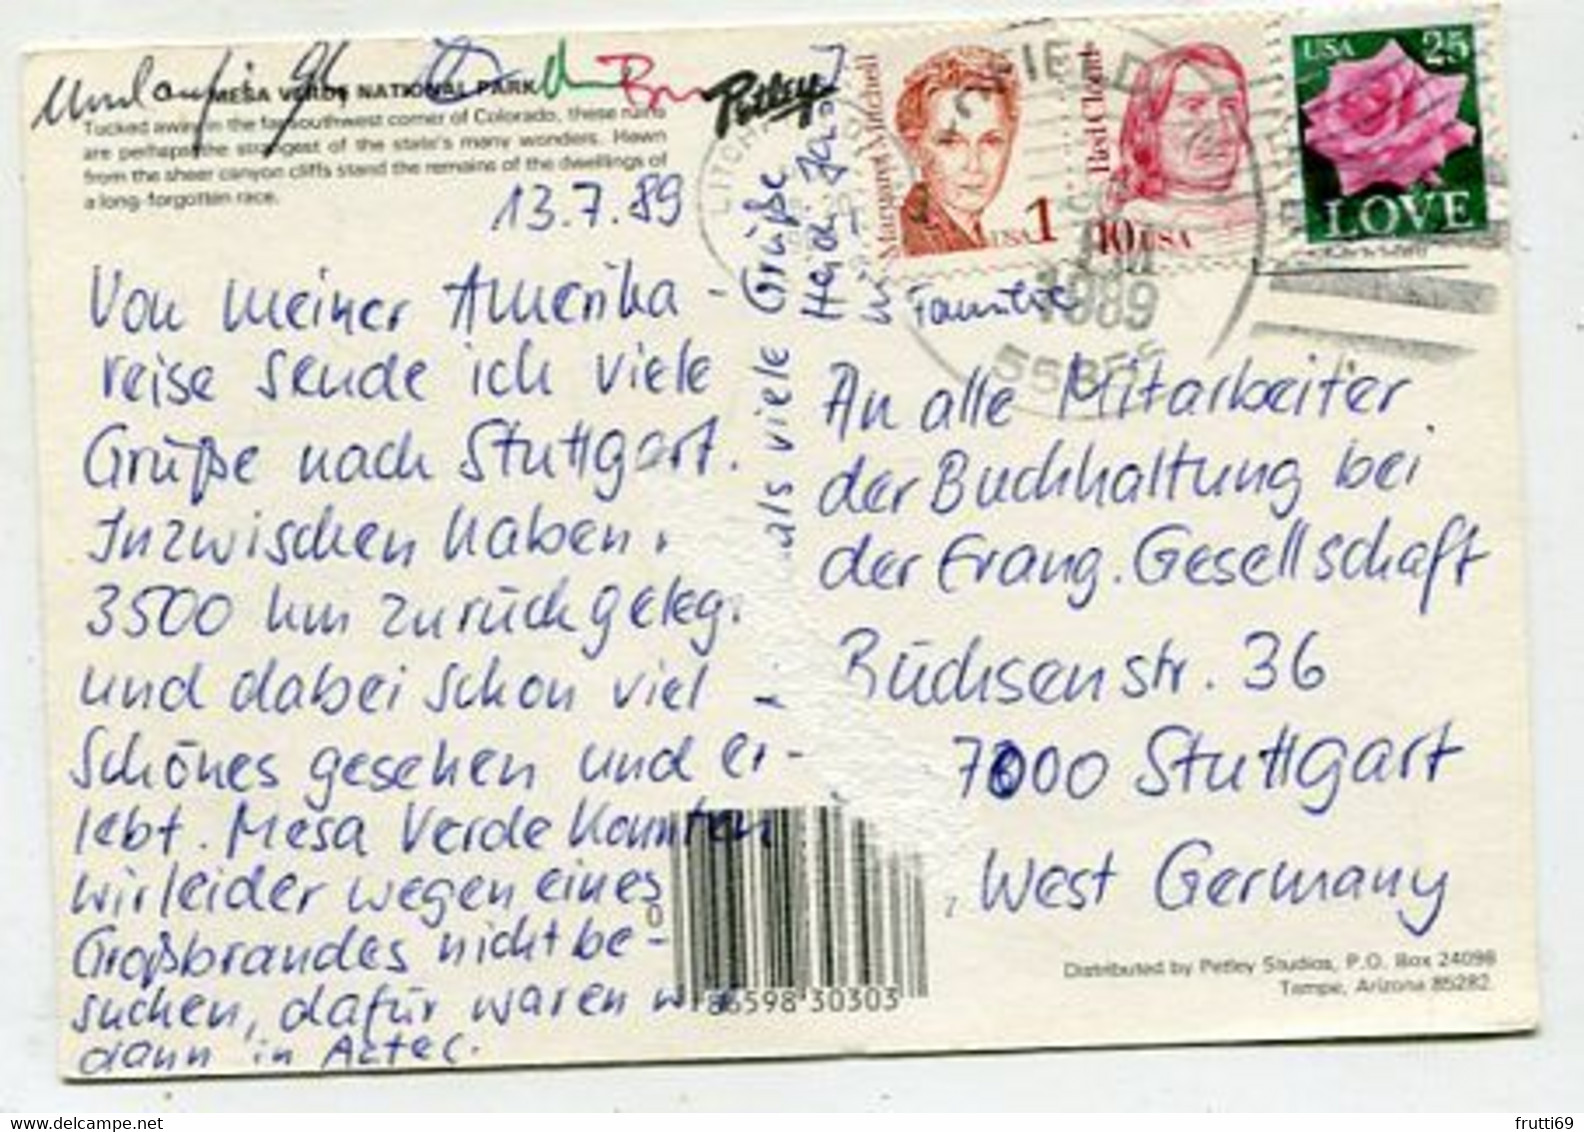 MESA VERDE NATIONAL PARK
Tucked away in the far southwest corner of Colorado, these ruins
are perhaps the strangest of the state's many wonders. Hewn
from the sheer canyon cliffs stand the remains of the dwellings of
a long-forgotten race.
Petley
13.7.89
Von meiner Amerika-
reise sende ich viele
Grüße nach Stuttgart.
Inzwischen haben
3500 km zurückgeleg
und dabei schon viel
Schönes gesehen und er-
lebt. Mesa Verde konnten
wir leider wegen eines
Großbrandes nicht be-
suchen, dafür waren wir
dann in Aztec.
als viele Grüße
Heidi
Familie
Margaret Mitchell
USA 1
Red Cloud
10 USA
USA 25
LOVE
LITCHFIELD
1989
An alle Mitarbeiter
der Buchhaltung bei
der Evang. Gesellschaft
Büchsenstr. 36
7000 Stuttgart
West Germany
0
86598 30303
7
Distributed by Petley Studios, P.O. Box 24098
Tempe, Arizona 85282
frutti69